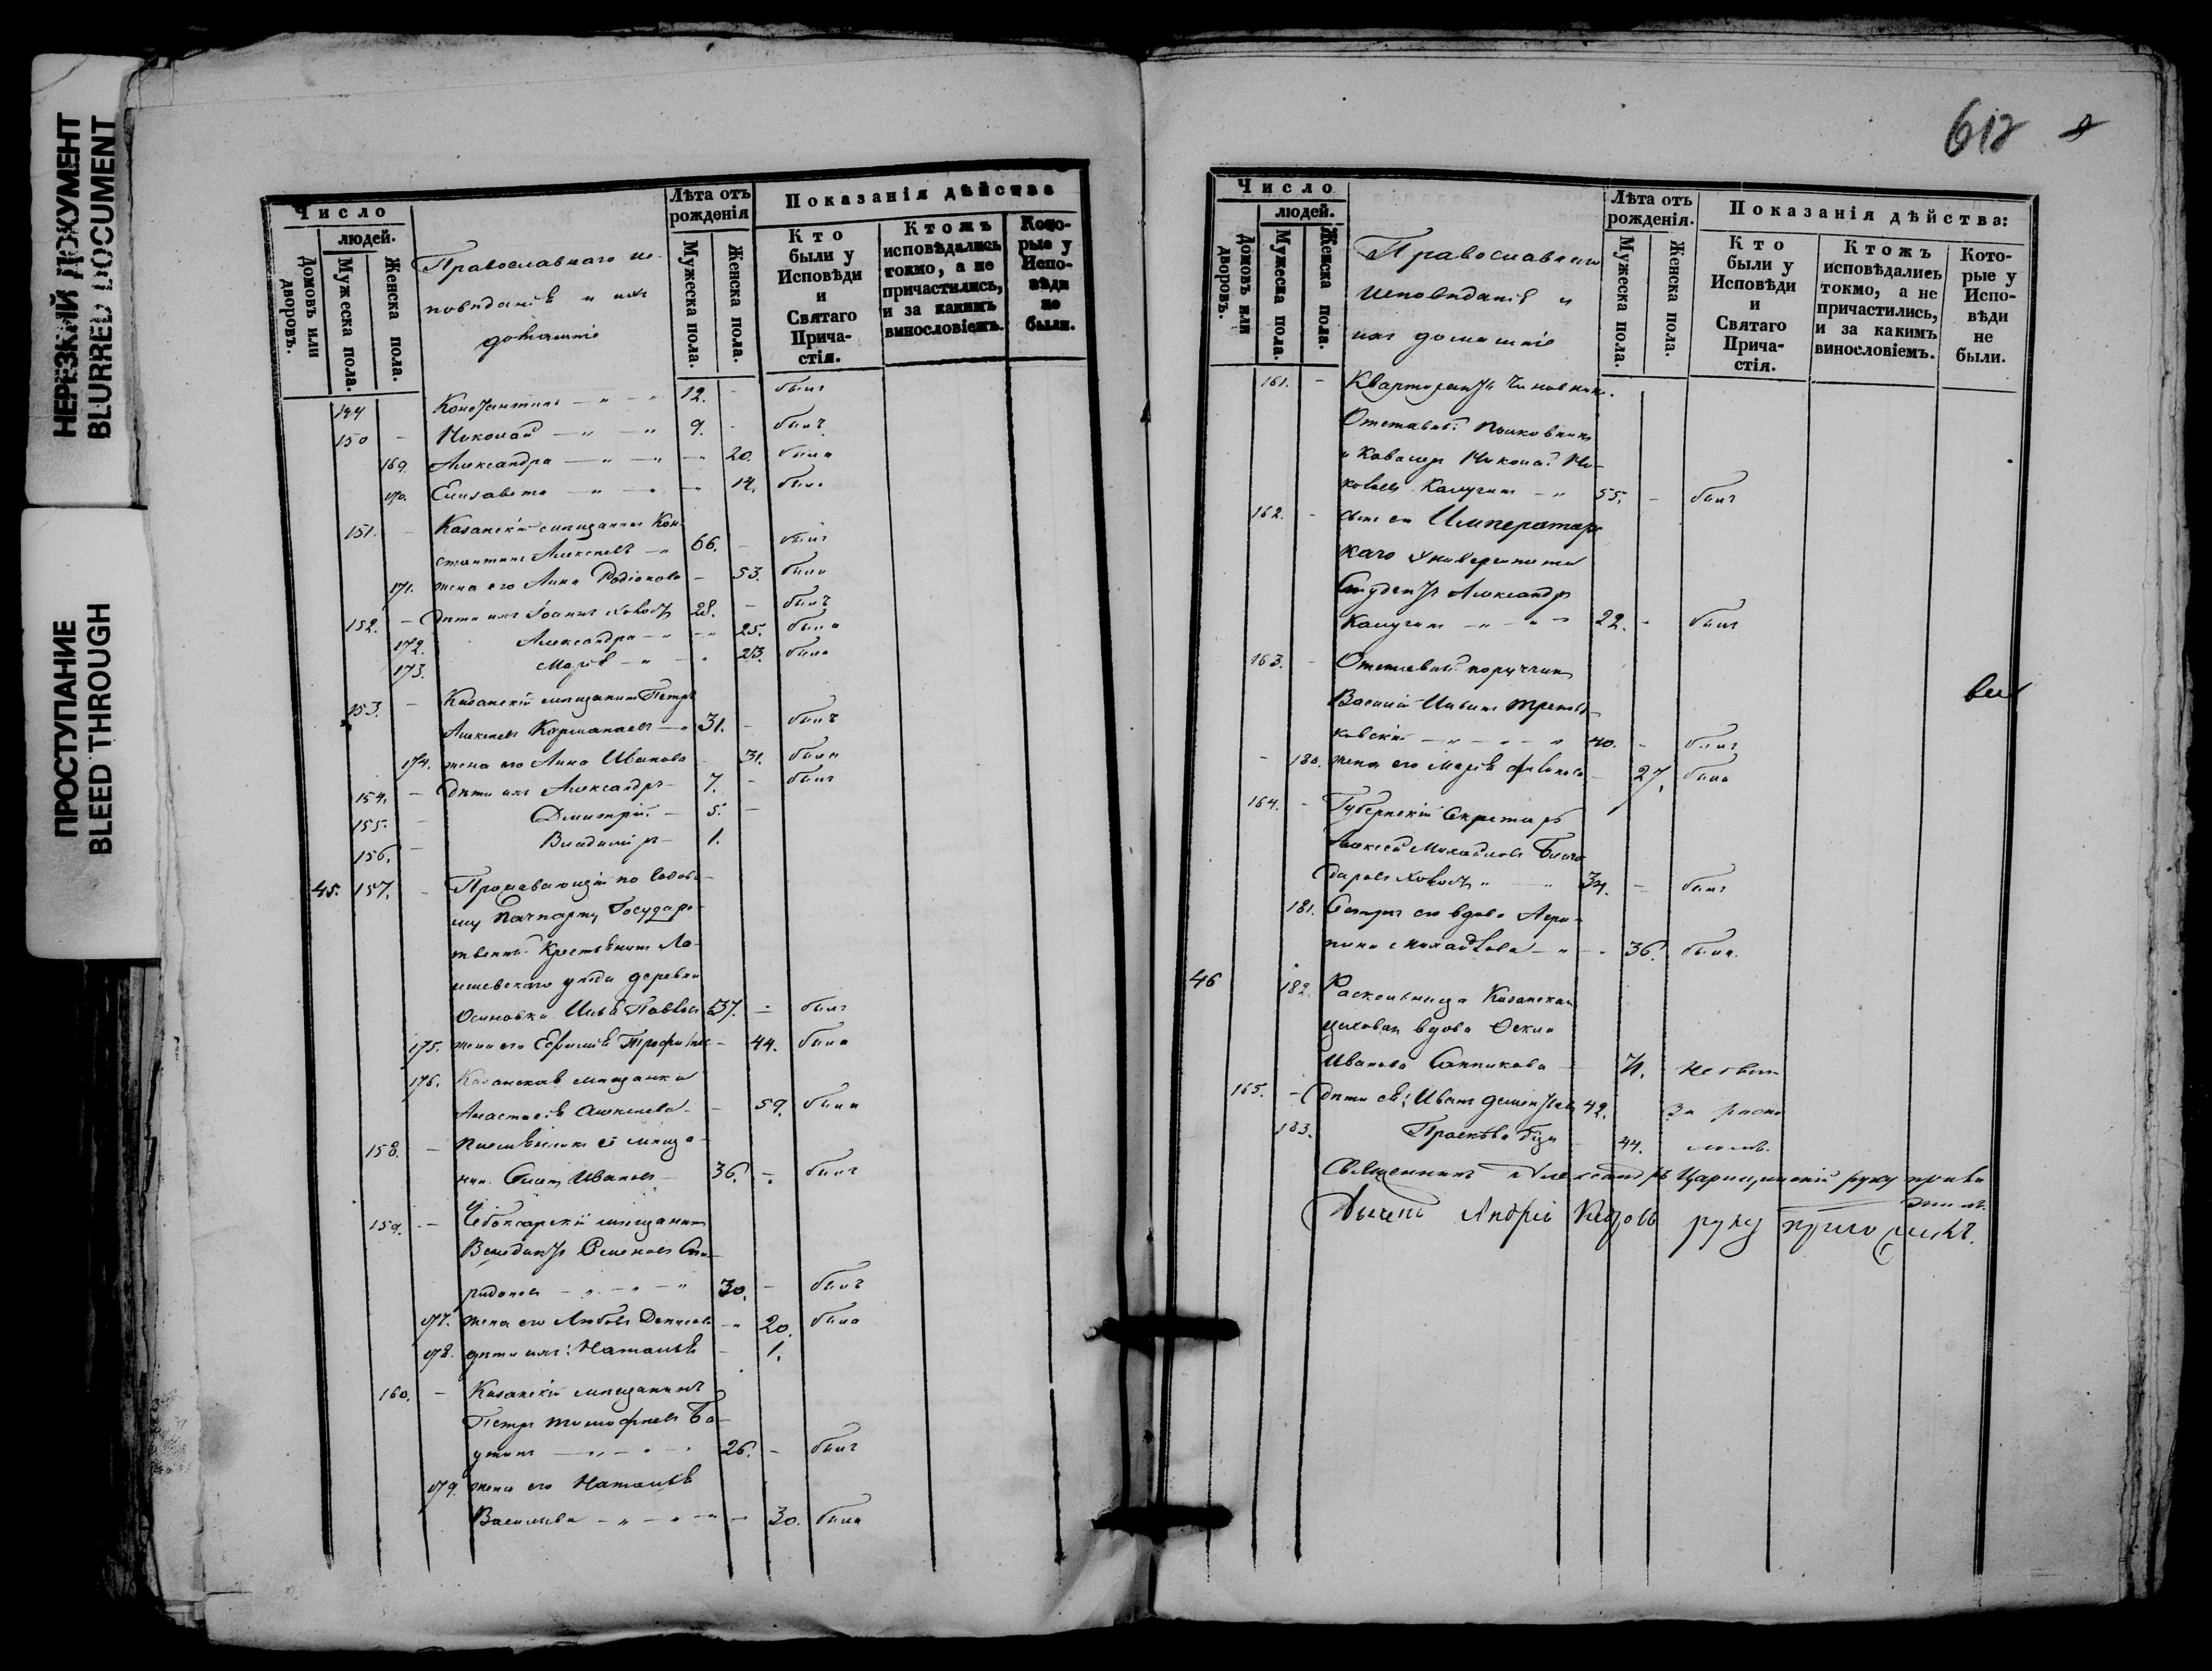 НЕРЕЗКИЙ ДОКУМЕНТ
BLURRED DOCUMENT
ПРОСТУПАНИЕ
BLEED THROUGH
Число
людей.
Домовъ или дворовъ.
Мужеска пола.
Женска пола.
Православнаго ис-
повѣданія и ихъ
домашніе
Лѣта отъ рожденія
Мужеска пола.
Женска пола.
Показанія дѣйства
Кто были у Исповѣди и Святаго Прича-стія.
Ктожъ исповѣдались токмо, а не причастились, и за какимъ винословіемъ.
Кото-рые у Испо-вѣди не были.
149 Константинъ — „ — „ 12. - былъ
150 - Николай — „ — „ 9. - былъ
169 Александра — „ — „ — 20. была
170. Елизавета — „ — „ — 14. была
151. - Казанскій мѣщанинъ Кон-
стантинъ Алексѣевъ — „ 66. - былъ
171. жена его Анна Родіонова - 53. была
152. - дѣти ихъ Іоаннъ холостъ 28. - былъ
172. Александра - „ - „ 25. была
173. Марія - „ - „ 23. была
153. - Казанскій мѣщанинъ Петръ
Алексѣевъ — „ 31. - былъ
174. жена его Анна Иванова - 31. была
154. - дѣти ихъ Александръ - 7. - былъ
155. - Дмитрій - 5. -
156. - Владиміръ - 1.
45. 157. - Проживающій по
му Государс-
твенный Крестьянинъ Ла-
ишевскаго уѣзда деревни
Осиновки Илья Павловъ 37. - былъ
175. жена его Трофимова - 44. была
176. Казанская мѣщанка
Анастасія Алексѣева - - 59. была
158. - Племянникъ ея мѣща-
нин. Иванов - 36. - былъ
159. - Чебоксарскій мѣщанинъ
Венедиктъ Семеновъ Спи-
ридоновъ - „ - „ - „ 30. - былъ
177. жена его Любовь Денисова - „ 20. была
178. дѣти ихъ: Наталья - 1.
160. - Казанскій мѣщанинъ
Петръ Тимофѣевъ Ба-
утинъ — „ - „ - 26. - былъ
179. жена его Наталья
Васильева - „ - „ - „ — 30. была
612
Число
людей.
Домовъ или дворовъ.
Мужеска пола.
Женска пола.
Православнаго
Исповѣданія и
ихъ домашніе
Лѣта отъ рожденія.
Мужеска пола.
Женска пола.
Показанія дѣйства:
Кто были у Исповѣди и Святаго Прича-стія.
Ктожъ исповѣдались токмо, а не причастились, и за какимъ винословіемъ.
Кото-рые у Испо-вѣди не были.
161. - Квартирантъ Чиновникъ
Отставный Полковникъ
и Кавалеръ Николай Ни-
колаевъ Калугинъ - „ 55. - былъ
162. - сынъ его Императорс
каго Университета
Студентъ Александръ
Калугинъ - „ - „ - 22. - былъ
163. - Отставный поручикъ
Василій
ковскій - „ - „ - „ 40. - былъ
- 180. жена его Марія - 27. была
164. - Губернскій Секретарь
Алексей Михайловъ Благо
даровъ холостъ „ — „ 34. - былъ
181. Сестра его вдова Агри-
пина Михайлова - „ - 36. была.
46 182. Раскольница Казанская
цеховая вдова
Иванова Санникова - 71. не были
165. - дѣти ея: Иванъ 42. за раско
183. Прасковья - 44. ломъ.
Священникъ Александръ Царицынскій руку прило
жилъ.
Дьячекъ Андрей руку приложилъ.